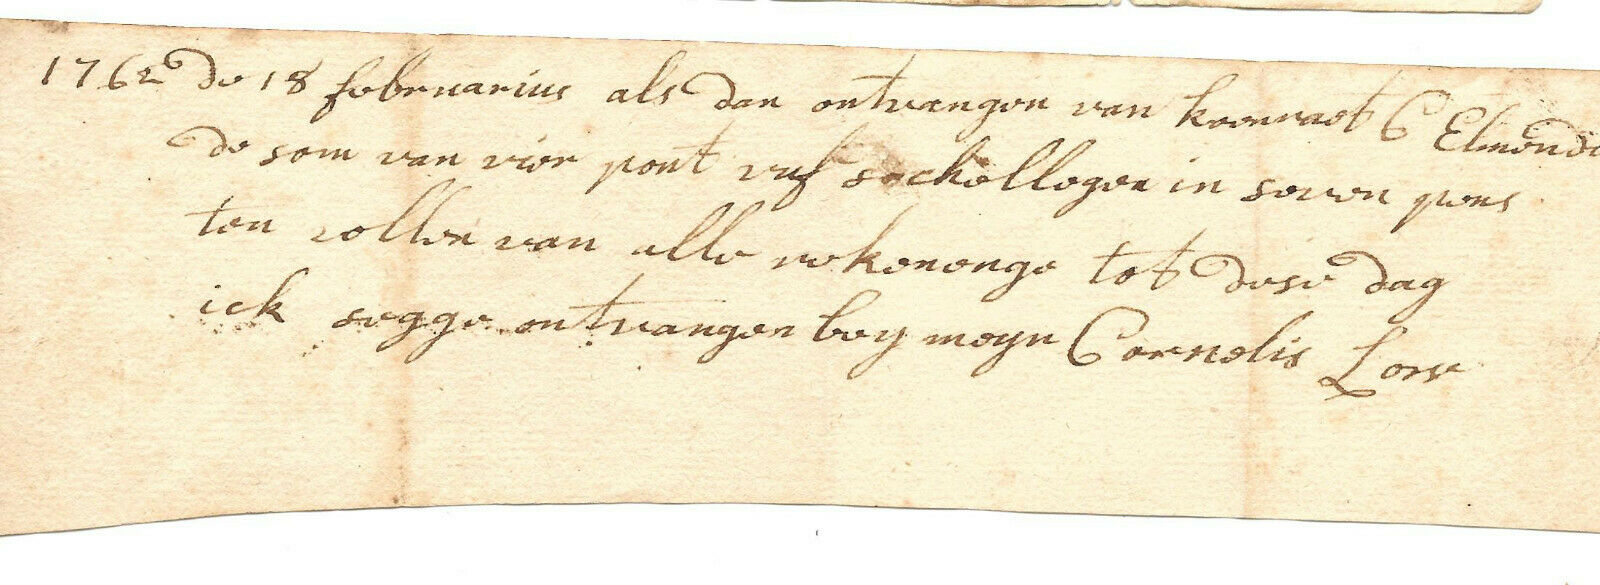 1762 de 18 februarius als dan ontvangen van koenraet C Elmendo
de som van vier pont vuf sochellegen in seven pens
ten vollen van alle rekenenge tot dese dag
ick segge ontvangen bey meyn Cornelis Low